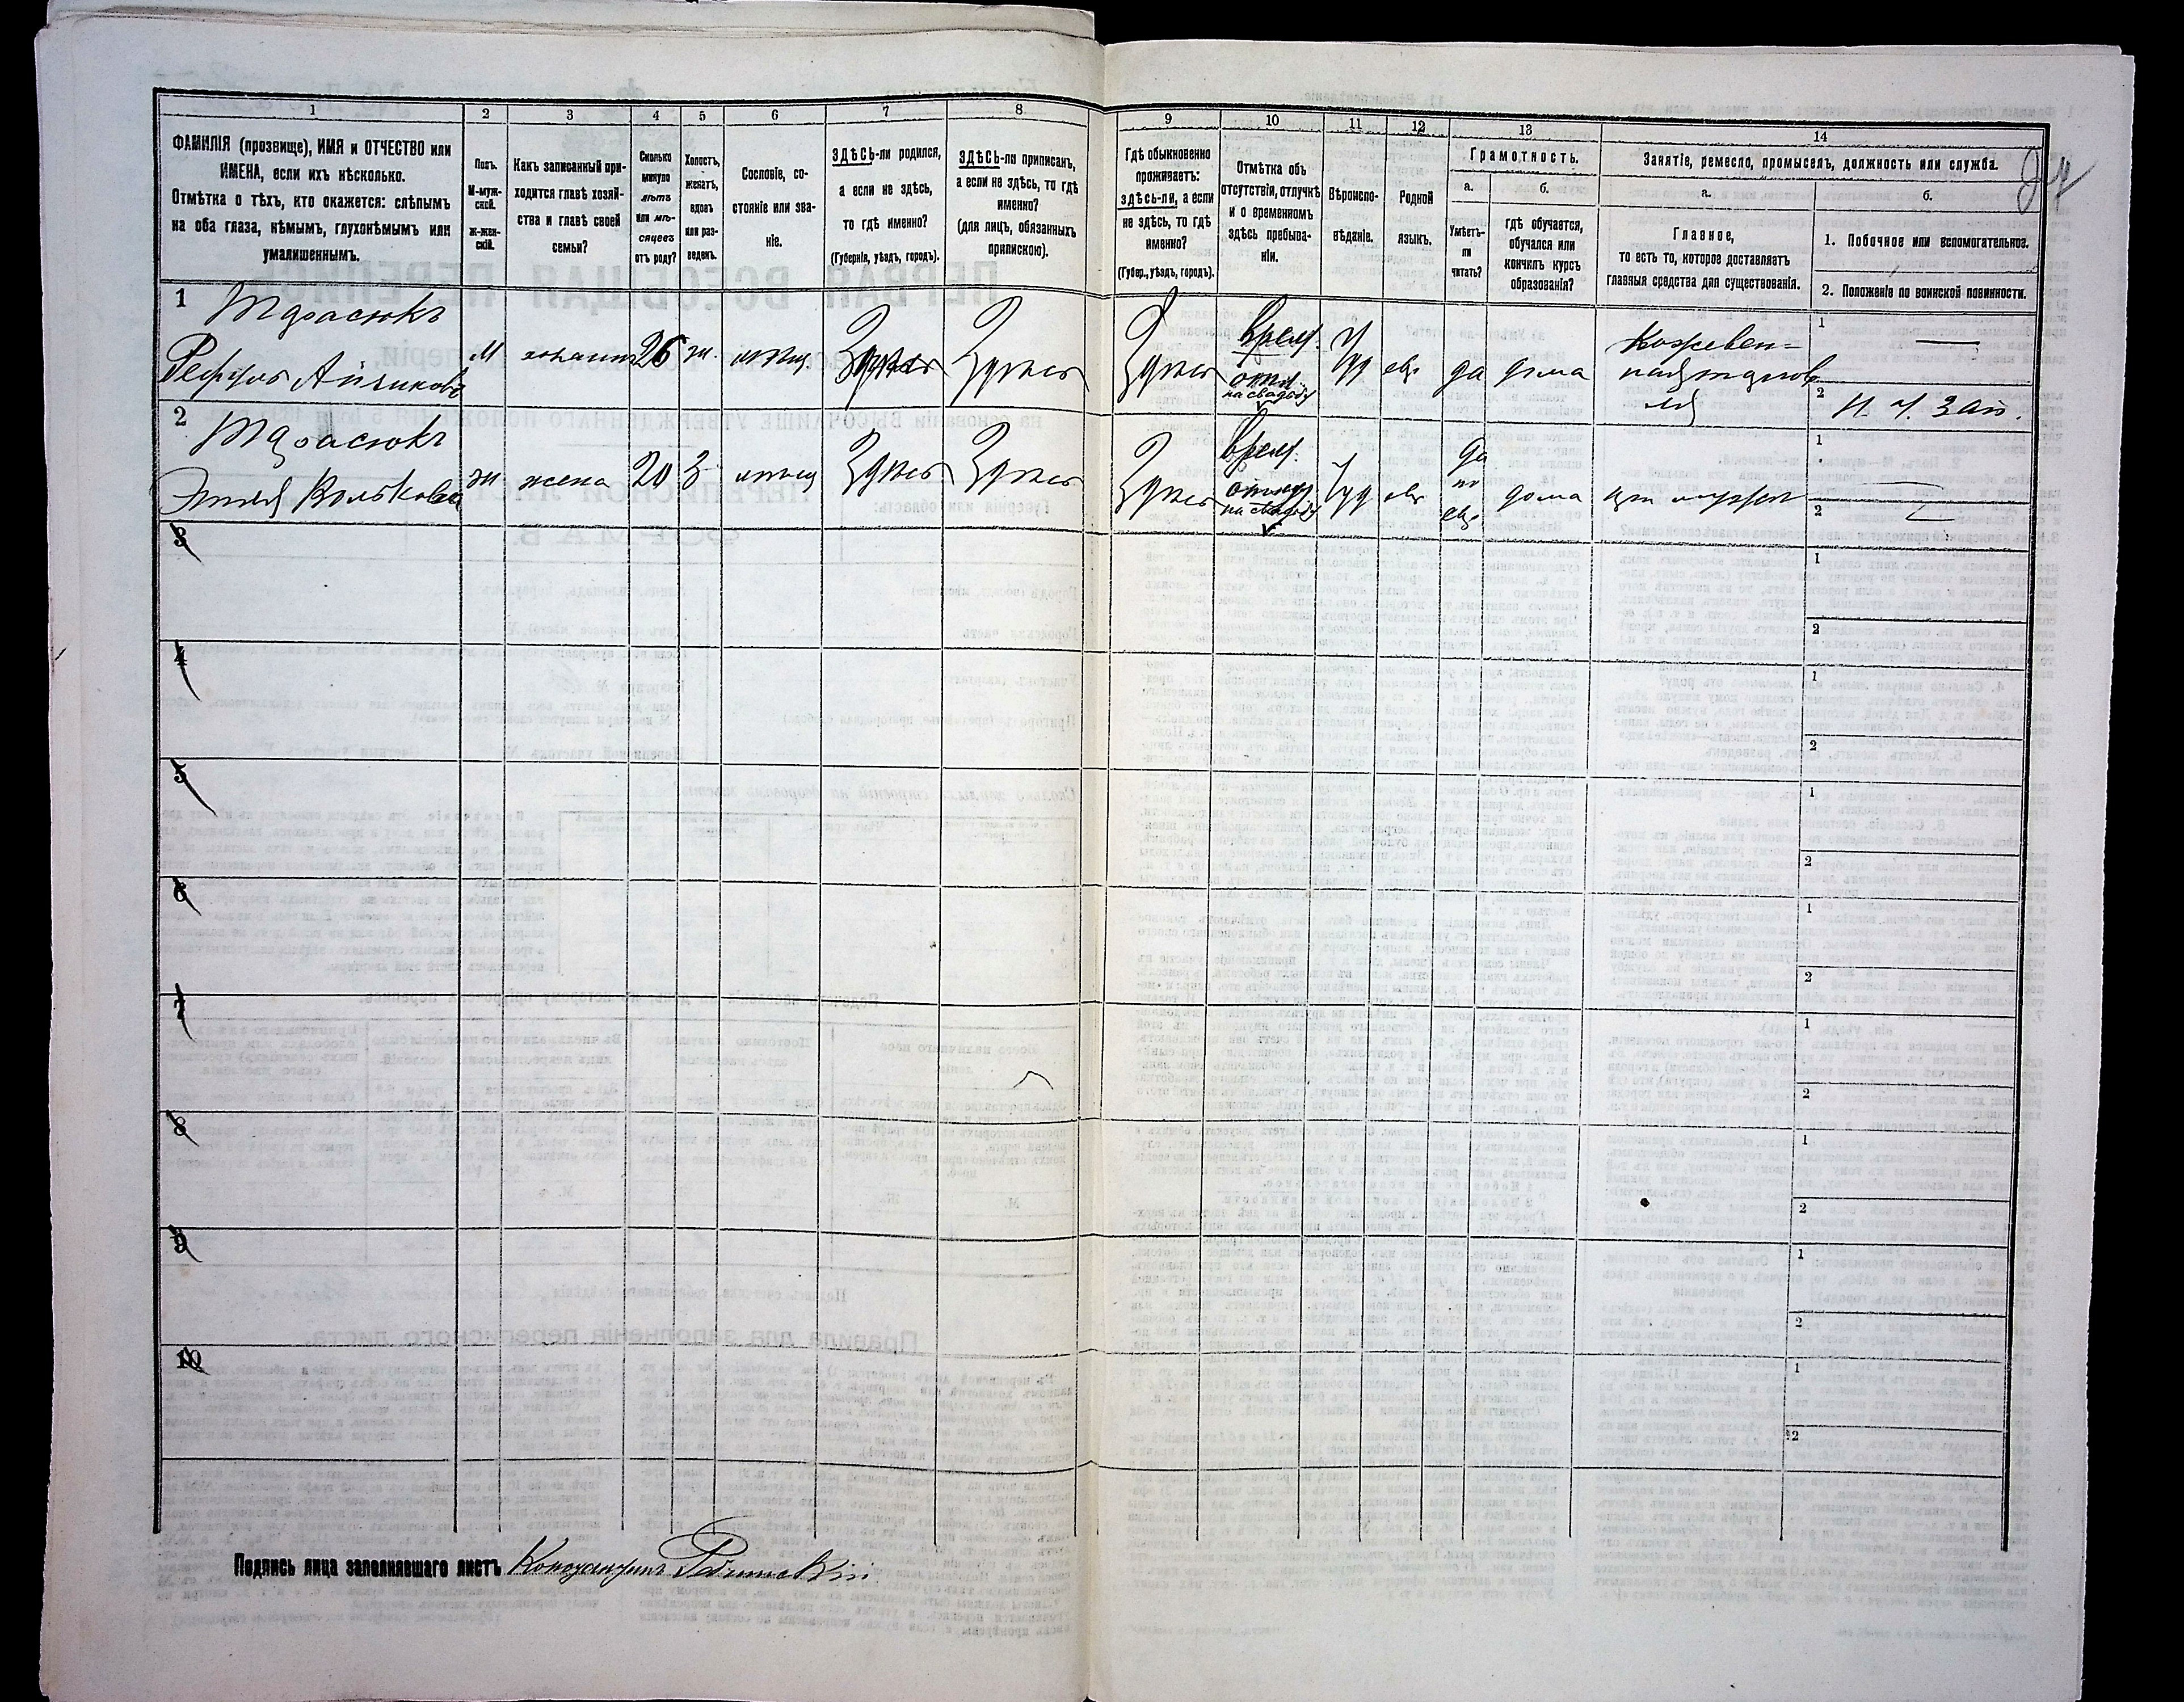 1 2 3 4 5 6 7 8 9 10 11 12 13 14
ФАМИЛІЯ (прозвище), ИМЯ и ОТЧЕСТВО или
ИМЕНА, если ихъ нѣсколько.
Отмѣтка о тѣхъ, кто окажется: слѣпымъ
на оба глаза, нѣмымъ, глухонѣмымъ или
умалишеннымъ.
Полъ.
М-муж-
ской.
ж-жен-
скій.
Какъ записанный при-
ходится главѣ хозяй-
ства и главѣ своей
семьи?
Сколько
минуло
лѣтъ
или мѣ-
сяцевъ
отъ роду?
Холостъ,
женатъ,
вдовъ
или раз-
веденъ.
Сословіе, со-
стояніе или зва-
ніе.
ЗДѢСЬ-ли родился,
а если не здѣсь,
то гдѣ именно?
(Губернія, уѣздъ, городъ).
ЗДѢСЬ-ли приписанъ,
а если не здѣсь, то гдѣ
именно?
(для лицъ, обязанныхъ
припискою).
Гдѣ обыкновенно
проживаетъ:
здѣсь-ли, а если
не здѣсь, то гдѣ
именно?
(Губер., уѣздъ, городъ).
Отмѣтка объ
отсутствіи, отлучкѣ
и о временномъ
здѣсь пребыва-
ніи.
Вѣроиспо-
вѣданіе.
Родной
языкъ.
Грамотность.
а.
Умѣетъ-
ли
читать?
б.
гдѣ обучается,
обучался или
кончилъ курсъ
образованія?
Занятіе, ремесло, промыселъ, должность или служба.
а.
Главное,
то есть то, которое доставляетъ
главныя средства для существованія.
б.
1. Побочное или вспомогательное.
2. Положеніе по воинской повинности.
1
Айзиковъ
М
26
ж.
мѣщ.
Здѣсь
Здѣсь
Здѣсь
врем.
отл.
на свадьбу
Іуд
евр
да
дома
Кожевен-
1 —
2
2
Вольковна
ж
жена
20
З
мѣщ
Здѣсь
Здѣсь
Здѣсь
врем.
на свадьбу
Іуд
евр
да
по
евр
дома
при мужѣ
1 —
2 —
3
1
2
4
1
2
5
1
2
6
1
2
7
1
2
8
1
2
9
1
2
10
1
2
Подпись лица заполнявшаго листъ